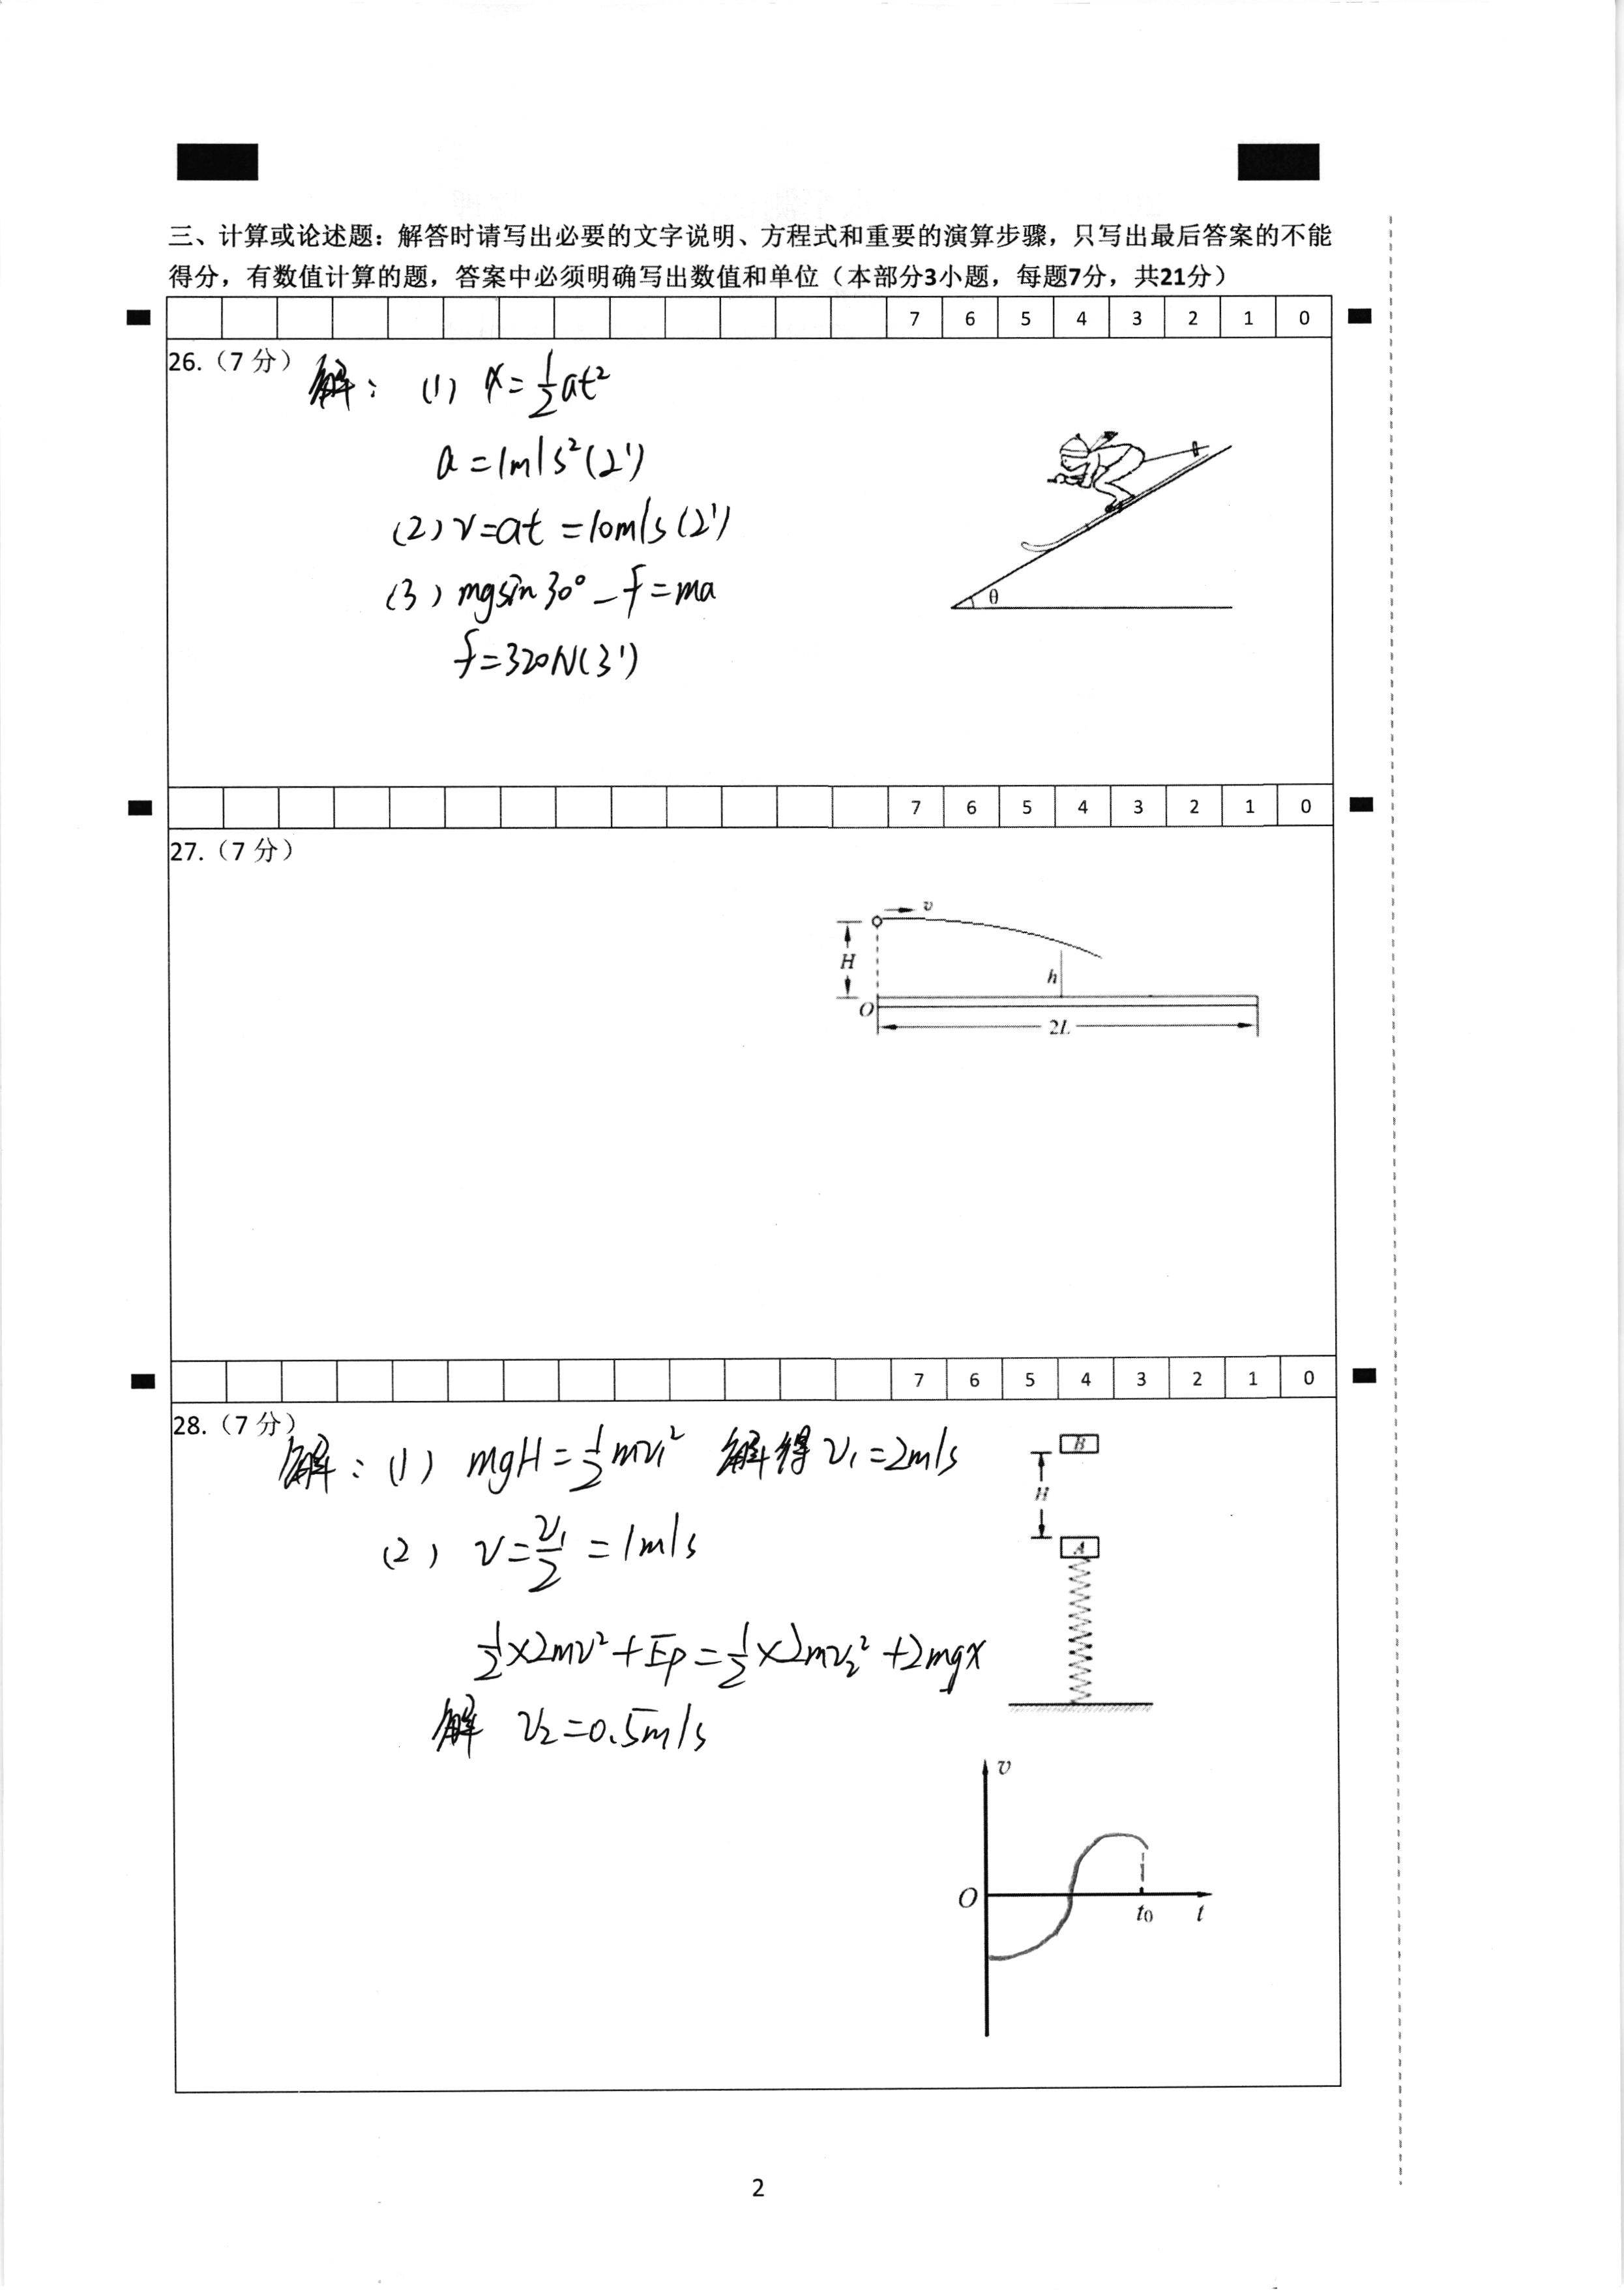 三、计算或论述题：解答时请写出必要的文字说明、方程式和重要的演算步骤，只写出最后答案的不能
得分，有数值计算的题，答案中必须明确写出数值和单位（本部分3小题，每题7分，共21分）
7 6 5 4 3 2 1 0
26.（7 分） 解：(1) x=½at²
a=1m/s²(2')
(2) v=at=10m/s(2')
(3) mgsin30°-f=ma
f=320N(3')
θ
7 6 5 4 3 2 1 0
27.（7 分）
v
H
h
O
2L
7 6 5 4 3 2 1 0
28.（7 分）
解：(1) mgH=½mv₁² 解得 v₁=2m/s
B
H
A
(2) v=v₁/2=1m/s
½×2mv²+Ep=½×2mv₂²+2mgx
解 v₂=0.5m/s
v
O t₀ t
2